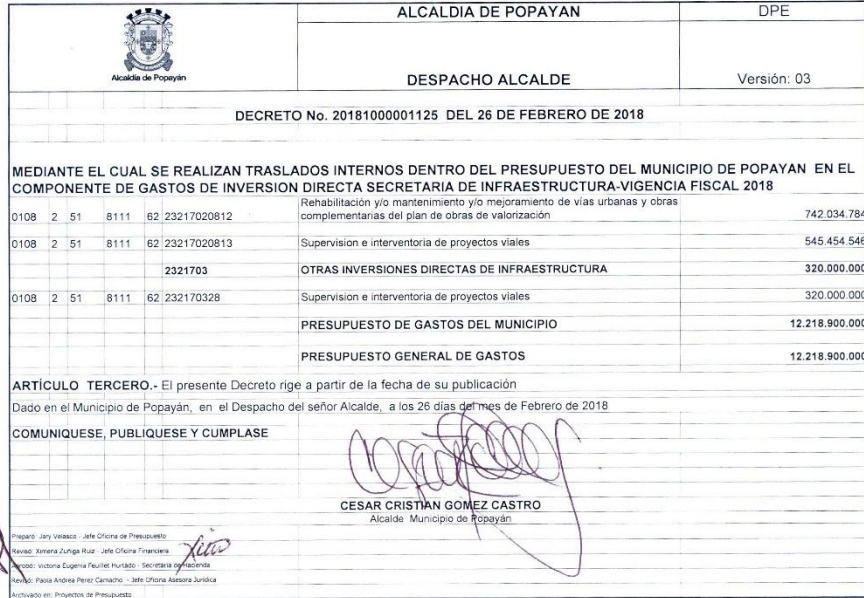 Alcaldía de Popayán
ALCALDIA DE POPAYAN
DPE
DESPACHO ALCALDE
Versión: 03
DECRETO No. 20181000001125 DEL 26 DE FEBRERO DE 2018
MEDIANTE EL CUAL SE REALIZAN TRASLADOS INTERNOS DENTRO DEL PRESUPUESTO DEL MUNICIPIO DE POPAYAN EN EL
COMPONENTE DE GASTOS DE INVERSION DIRECTA SECRETARIA DE INFRAESTRUCTURA-VIGENCIA FISCAL 2018
Rehabilitación y/o mantenimiento y/o mejoramiento de vías urbanas y obras
0108 2 51 8111 62 23217020812 complementarias del plan de obras de valorización 742.034.784
0108 2 51 8111 62 23217020813 Supervision e interventoria de proyectos viales 545.454.546
2321703 OTRAS INVERSIONES DIRECTAS DE INFRAESTRUCTURA 320.000.000
0108 2 51 8111 62 232170328 Supervision e interventoria de proyectos viales 320.000.000
PRESUPUESTO DE GASTOS DEL MUNICIPIO 12.218.900.000
PRESUPUESTO GENERAL DE GASTOS 12.218.900.000
ARTÍCULO TERCERO.- El presente Decreto rige a partir de la fecha de su publicación
Dado en el Municipio de Popayán, en el Despacho del señor Alcalde, a los 26 días del mes de Febrero de 2018
COMUNIQUESE, PUBLIQUESE Y CUMPLASE
CESAR CRISTIAN GOMEZ CASTRO
Alcalde Municipio de Popayán
Preparó: Jary Velasco - Jefe Oficina de Presupuesto
Revisó: Ximena Zuñiga Ruiz - Jefe Oficina Financiera
Aprobó: Victoria Eugenia Feuillet Hurtado - Secretaria de Hacienda
Revisó: Paola Andrea Perez Camacho - Jefe Oficina Asesora Jurídica
Archivado en: Proyectos de Presupuesto